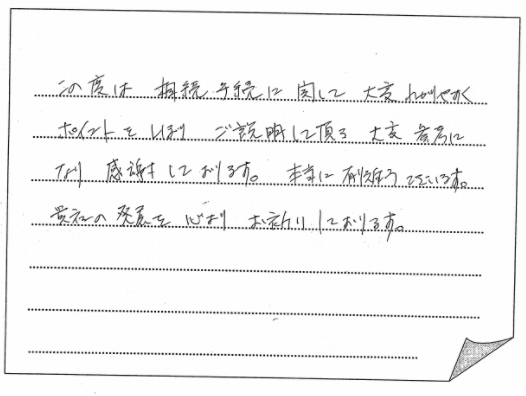 この度は 相続手続に関して 大変わかりやすく
ポイントをしぼり ご説明して頂き 大変参考に
なり 感謝しております。本当に有難うございます。
貴社の発展を心より お祈りしております。